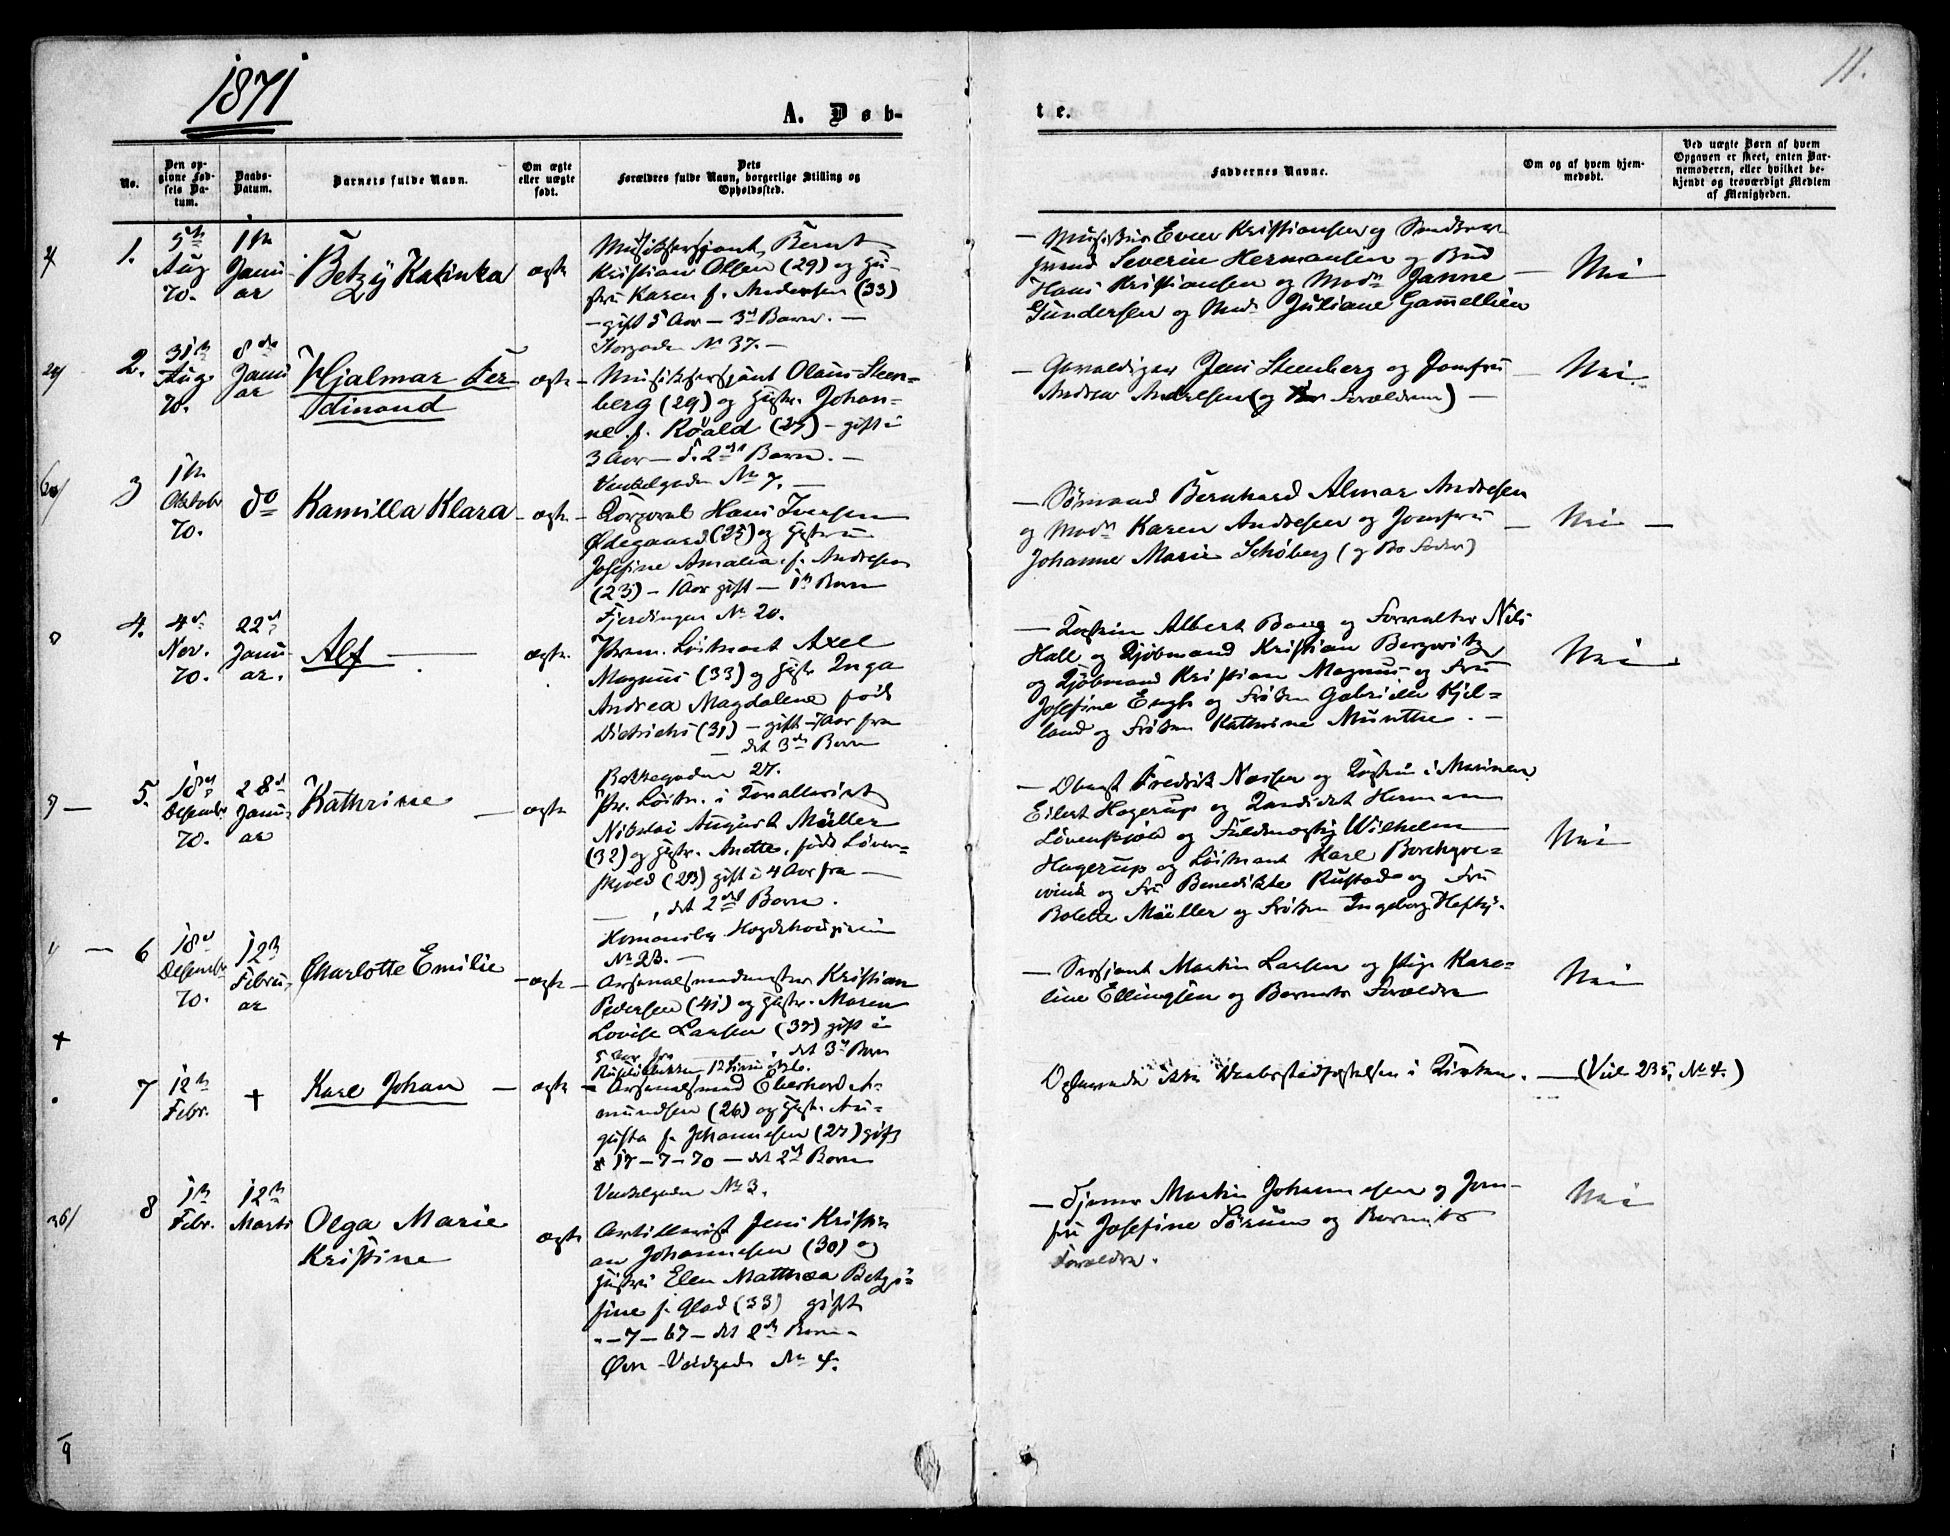 1871
11.
A. Døb-
te.
No.
Den op-
givne Fød-
sels Da-
tum.
Daabs-
Datum.
Barnets fulde Navn.
Om ægte
eller uægte
født.
Dets
Forældres fulde Navn, borgerlige Stilling og
Opholdssted.
Faddernes Navne.
Om og af hvem hjem-
medøbt.
Ved uægte Børn af hvem
Opgaven er skeet, enten Bar-
nemoderen, eller hvilket be-
kjendt og troværdigt Medlem
af Menigheden.
1.
5te
Aug
70.
1ste
Janu
ar
Betzy Katinka
ægte
Musiksersjant Bernt
Kristian Olsen (29) og Hu-
stru Karen f. Andersen (33)
– gift 5 Aar – 3de Barn. –
Storgaden No 37. –
– Musikus Even Kristiansen og
Svend Severin Hermansen og Bud
Hans Kristiansen og Mad. Janne
Gundersen og Mad. Juliane Gamellien
Nei
2.
31te
Aug.
70.
8de
Janu
ar
Hjalmar Fer-
dinand
ægte
Musiksersjant Olaus Steen-
berg (29) og Hustr. Johan-
ne f. Roald (27) – gift i
3 Aar – d. 2det Barn. –
No 7. –
– Gevaldiger Jens Steenberg og Jomfru
Andrea Andersen (og Forældrene) –
Nei
3
1ste
Oktober
70.
do
Kamilla Klara
ægte
Korporal Hans Iversen
Ødegaard (25) og Hustru
Josefine Amalia f. Andresen
(23) – 1 Aar gift – 1ste Barn
Fjerdingen No 20.
– Sømand Bernhard Almar Andresen
og Mad. Karen Andresen og Jomfru
Johanne Marie Schøberg (og Bo Fader)
Nei –
4.
4de
Nov.
70.
22de
Janu
ar.
Alf
ægte
Prem. Løitnant Axel
Magnus (33) og Hustr Inga
Andrea Magdalene født
Dietrichs (31) – gift – 7 Aar fra
– det 3de Barn
Bakkegaden 27.
– Kaptein Albert Bang og Forvalter Nils
Hall og Kjøbmand Kristian Bergwitz
og Kjøbmand Kristian Magnus og Fru
Josefine Engh og Frøken Gabrielle Kjel-
land og Frøken Kathrine Munthe. –
Nei
5.
18de
Desember
70.
28de
Janu-
ar
Kathrine
ægte
Pr. Løitn. i Kavalleriet
Nikolai August Müller
(32) og Hustr. Anette, født Løven-
skjold (23) gift i 4 Aar fra –
– , det 2det Barn.
Homansby
No 23. –
– Oberst Fredrik Næser og Kaptein i Marinen
Eilert Hagerup og Kandidat Herman
Løvenskjold og Fuldmægtig Wilhelm
Hagerup og Løitnant Karl Borchgre-
vink og Fru Benedikte Rustad og Fru
Bolette Müller og Frøken Ingeborg Heftye.
Nei
6
18de
Desember
70.
12te
Febru-
ar
Charlotte Emilie
ægte
Arsenalsmadmester Kristian
Pedersen (41) og Hustr. Maren
Lovise Larsen (37) gift i
5 Aar fra – , det 3de Barn
– Sersjant Martin Larsen og Pige Karo-
line Ellingsen og Barnets Forældre
Nei
7
12te
Febr.
+
Karl Johan
ægte
– Arsenalsmand Eberhard A-
mundsen (26) og Hustr. Au-
gusta f. Johannesen (27) gift
17–7–70 – det 2det Barn
No 3.
i Kirken. – (Vid 235, No 4.)
8
1ste
Febr.
12te
Marts
Olga Marie
Kristine
ægte
Artillerist Jens Kristi
an Johannesen (30) og
Hustru Elen Mathea Betzy-
fine f. Glad (33) gift
– 7 – 67 – det 2det Barn –
Øvre Voldgade No 4.
– Martin Johannesen og Jom-
fru Josefine Sørum og Barnets
Forældre.
Nei